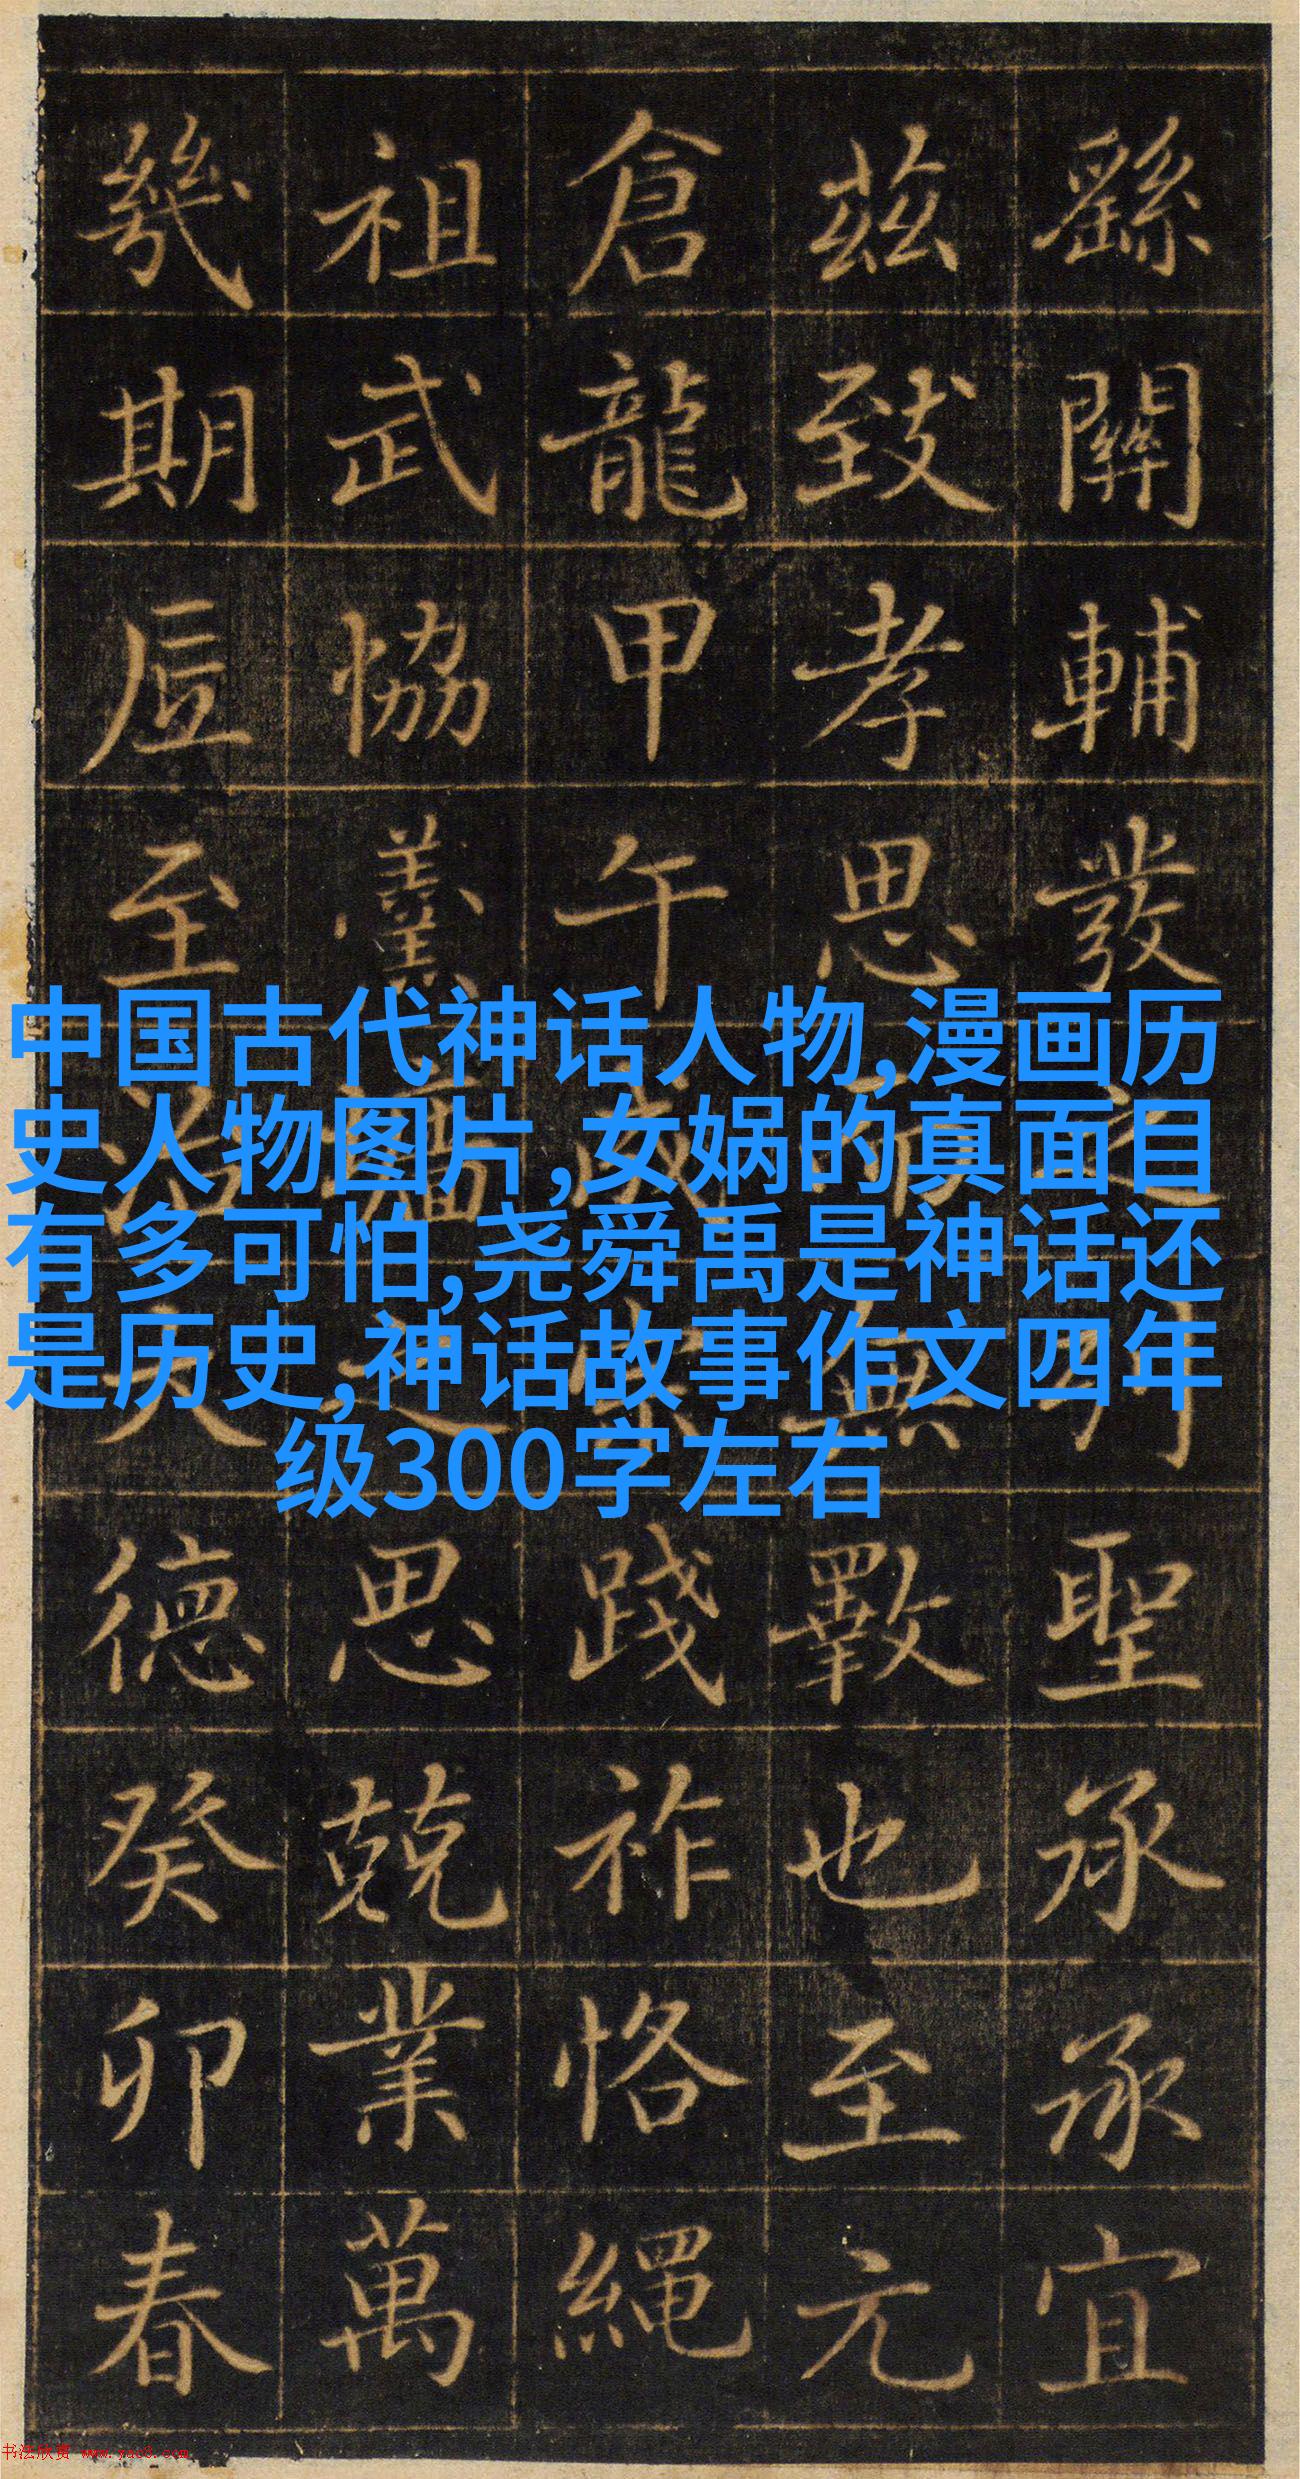 繇關輔發之列聖承承宜
茲致孝思所無斁也至元
倉龍甲午成宗踐祚恪繩
祖武協羹牆之思兢業萬
幾期底至治大德癸卯春
中国古代神话人物,漫画历
史人物图片,女娲的真面目
有多可怕,尧舜禹是神话还
是历史,神话故事作文四年
级300字左右
书法欣赏 www.yac8.com